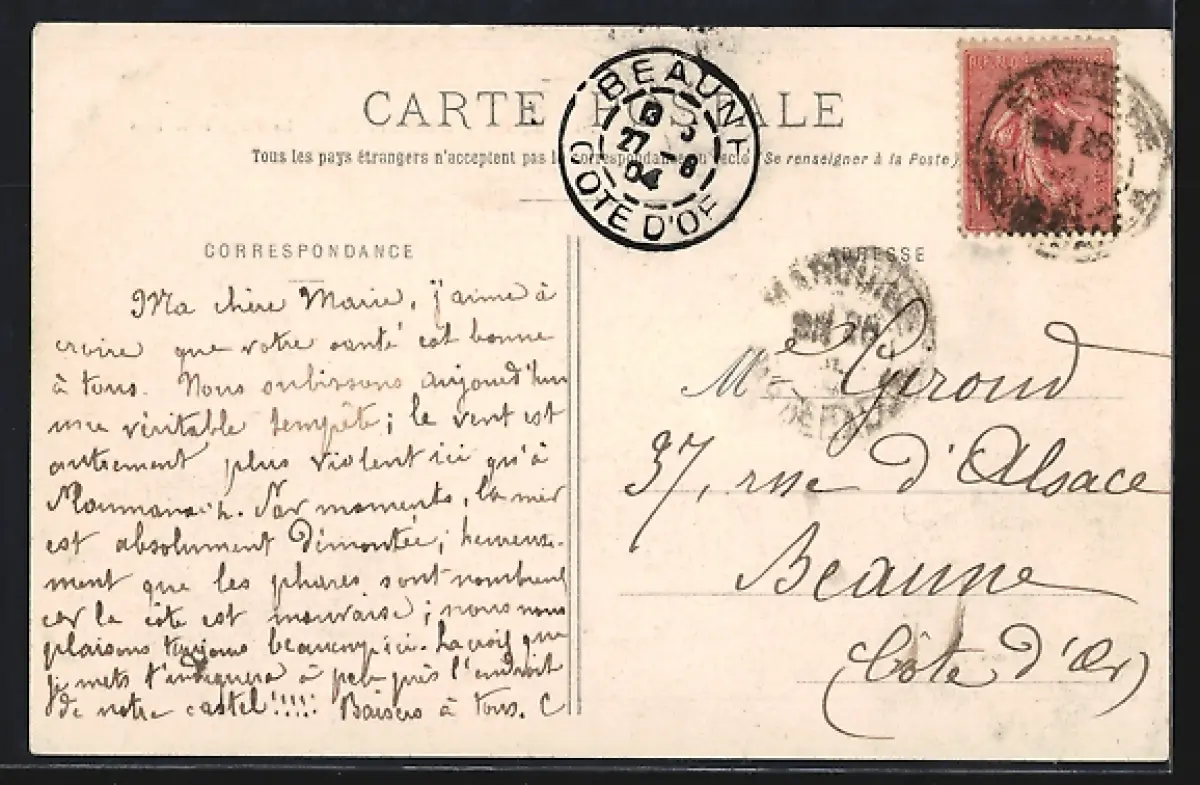 CARTE POSTALE
Tous les pays étrangers n'acceptent pas la correspondance au recto (Se renseigner à la Poste)
BEAUNE
27 8
04
COTE D'OR
CORRESPONDANCE
Ma chère Marie, j'aime à
croire que votre santé est bonne
à tous. Nous subissons aujourd'hui
une véritable tempête; le vent est
autrement plus violent ici qu'à
Ploumanach. Par moments, la mer
est absolument démontée; heureuse-
ment que les phares sont nombreux
car la côte est mauvaise; nous nous
plaisons toujours beaucoup ici. La croix que
je mets t'indiquera à peu près l'endroit
de notre castel!!!!! Baisers à tous. C
ADRESSE
Me Giroud
37, rue d'Alsace
Beaune
(Côte d'Or)